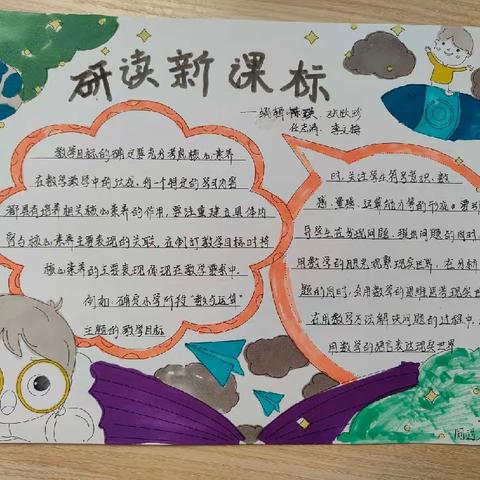 研读新课标
编辑:陈琰、张欣珍
任志涛、李文
教学目标的确定要充分考虑核心素养
在数学教学中的达成。每一个特定的学习内容
都具有培养相关核心素养的作用,要注重建立具体内
容与核心素养主要表现的关联,在制订教学目标时将
核心素养的主要表现体现在教学要求中。
例如:确定小学阶段“数与运算”
主题的教学目标
时,关注学生符号意识、数
感、量感、运算能力等的形成。要引
导学生在发现问题、提出问题的同时,
用数学的眼光观察现实世界,在分析
题的同时,会用数学的思维思考现实世
在用数学方法解决问题的过程中,
用数学的语言表达现实世界